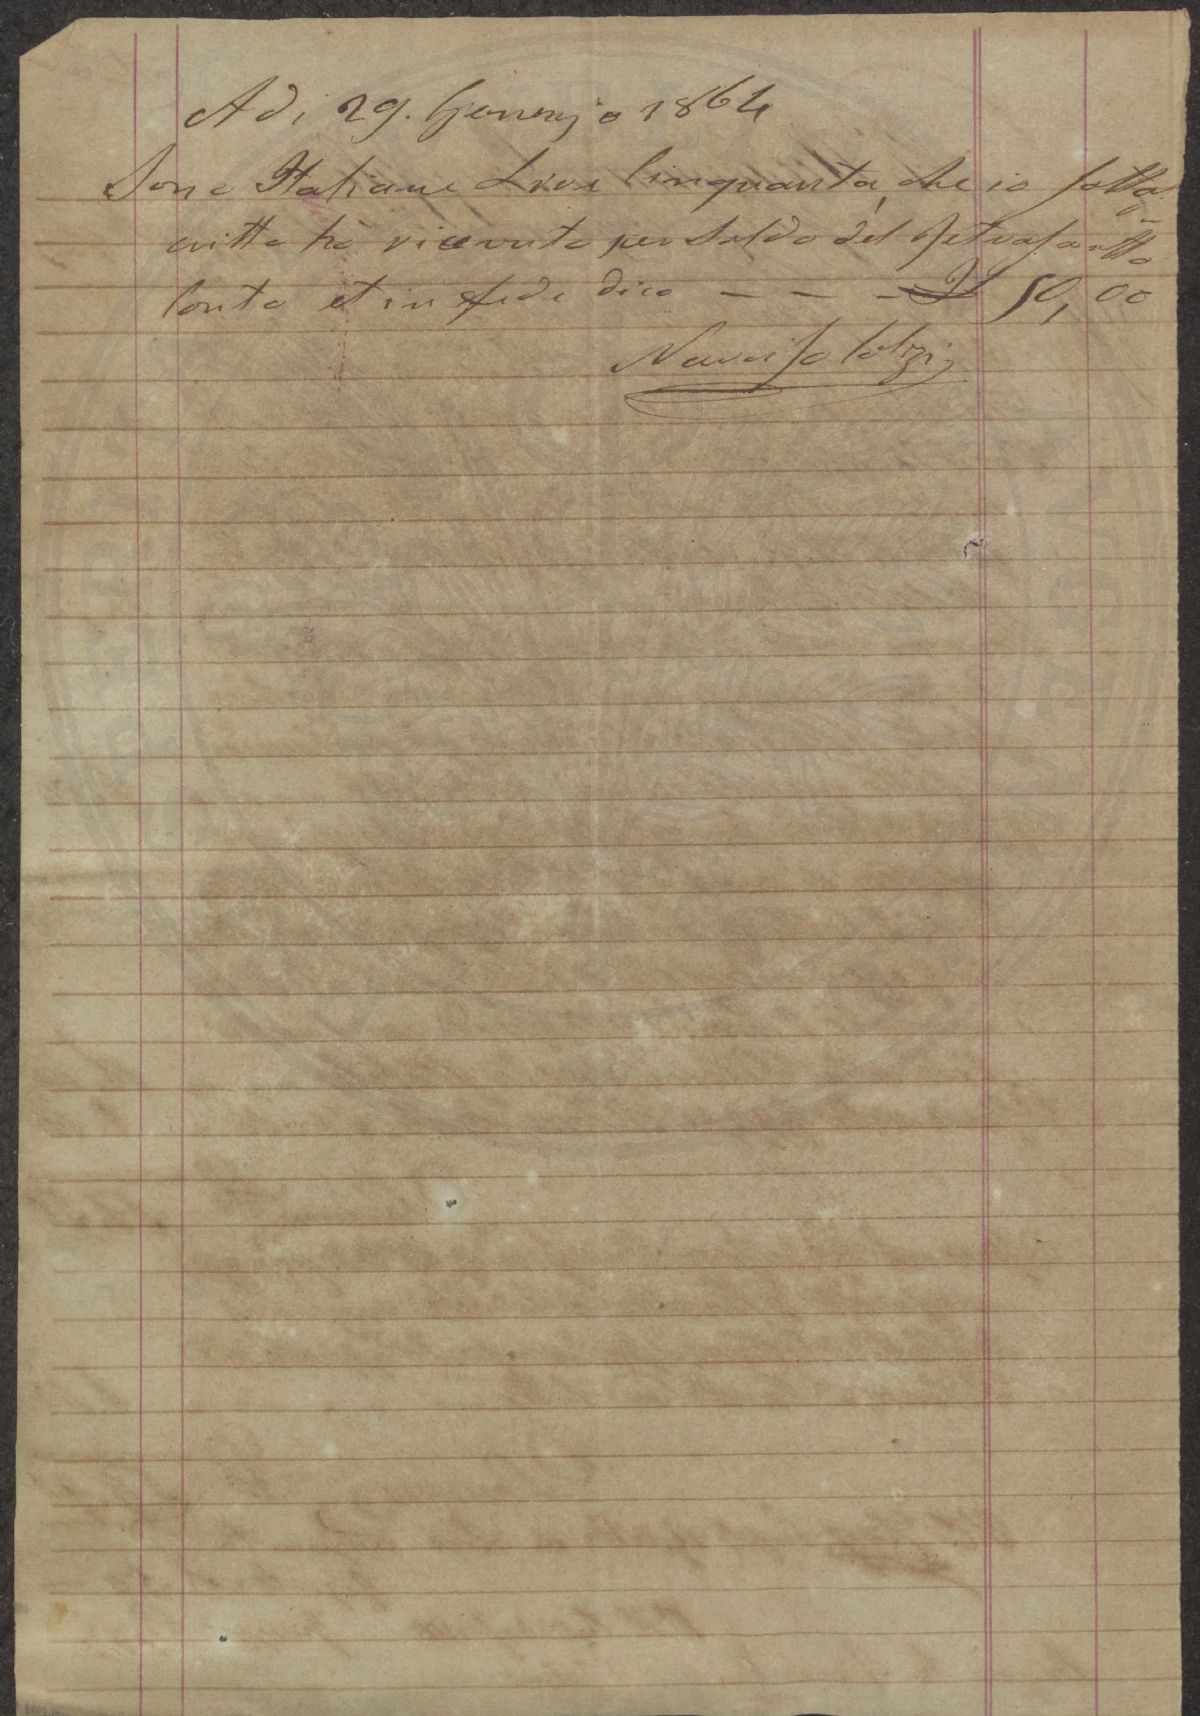 Adi 29. Gennajo 1864
Sono Italiane Lire Cinquanta, che io sotto
critto hò ricevuto per Saldo del retrosc itto
Conto et in fede dico — — — 50,00